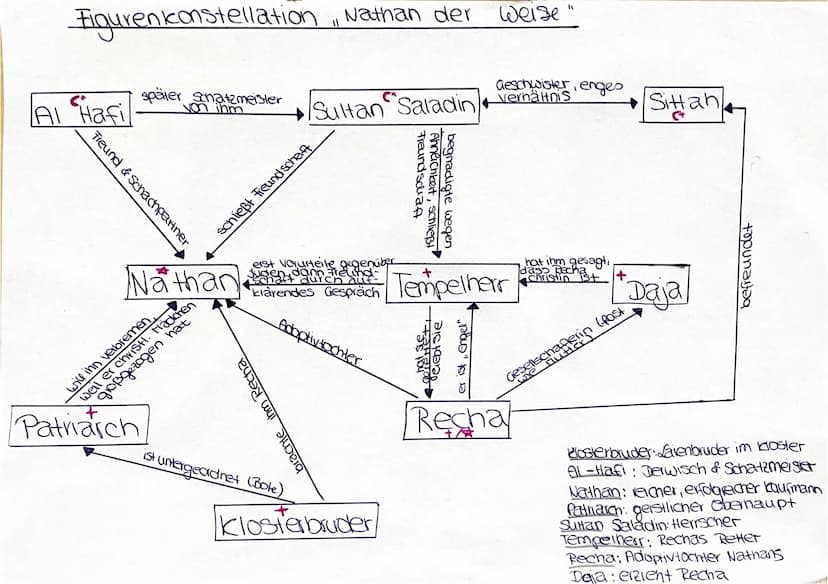 Figurenkonstellation „Nathan der Weise"
Al Hafi
später Schatzmeister
von ihm
Sultan Saladin
Geschwister, enges
verhältnis
Sittah
Freund & Schachpartner
schießt Freundschaft
begnadigte wegen
Ähnlichkeit, schließt
Freundschaft
befreundet
Nathan
erst Vorurteile gegenüber
Juden, dann Freund-
schaft durch auf-
klärendes Gespräch
Tempelherr
hat ihm gesagt,
dass Recha
Christin ist
Daja
will ihn verbrennen,
weil er christl. Mädchen
großgezogen hat
Adoptivtochter
hat sie
gerettet,
liebt sie
er ist „Engel"
Gesellschafterin (fast
wie Mutter)
brachte ihm Recha
Patriarch
Recha
ist untergeordnet (Bote)
Klosterbruder
Klosterbruder: Laienbruder im Kloster
Al-Hafi: Derwisch & Schatzmeister
Nathan: reicher, erfolgreicher Kaufmann
Patriarch: geistlicher Oberhaupt
Sultan Saladin: Herrscher
Tempelherr: Rechas Retter
Recha: Adoptivtochter Nathans
Daja: erzieht Recha